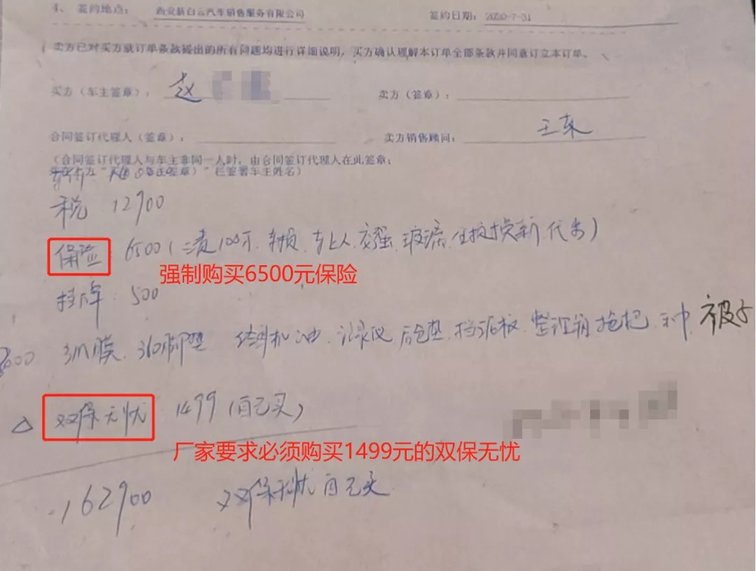 4、 签约地点： 西安新白云汽车销售服务有限公司 签约日期：2020-7-31
卖方已对买方就订单条款提出的所有问题均进行详细说明，买方确认理解本订单全部条款并同意订立本订单。
买方（车主签章）： 赵 卖方（签章）：
合同签订代理人（签章）： 卖方销售顾问： 王东
（合同签订代理人与车主非同一人时，由合同签订代理人在此签章；
栏签署车主姓名）
税 12900
保险 6500（三责100万、车损、车上人、交强、玻璃、
强制购买6500元保险
挂牌 500
3M膜、360脚垫 机油、记录仪、后仓垫、挡泥板、整理箱、拖把
双保无忧 1499（自己买）
厂家要求必须购买1499元的双保无忧
162900 双保无忧自己买